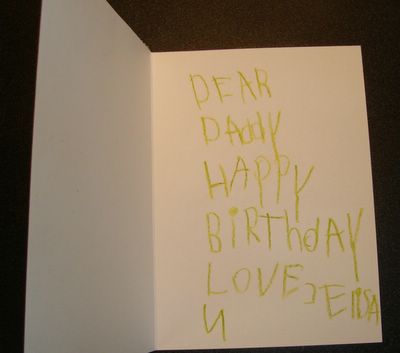 DEAR
DAddy
HAPPY
BiRThdAY
LOVE, ElisA